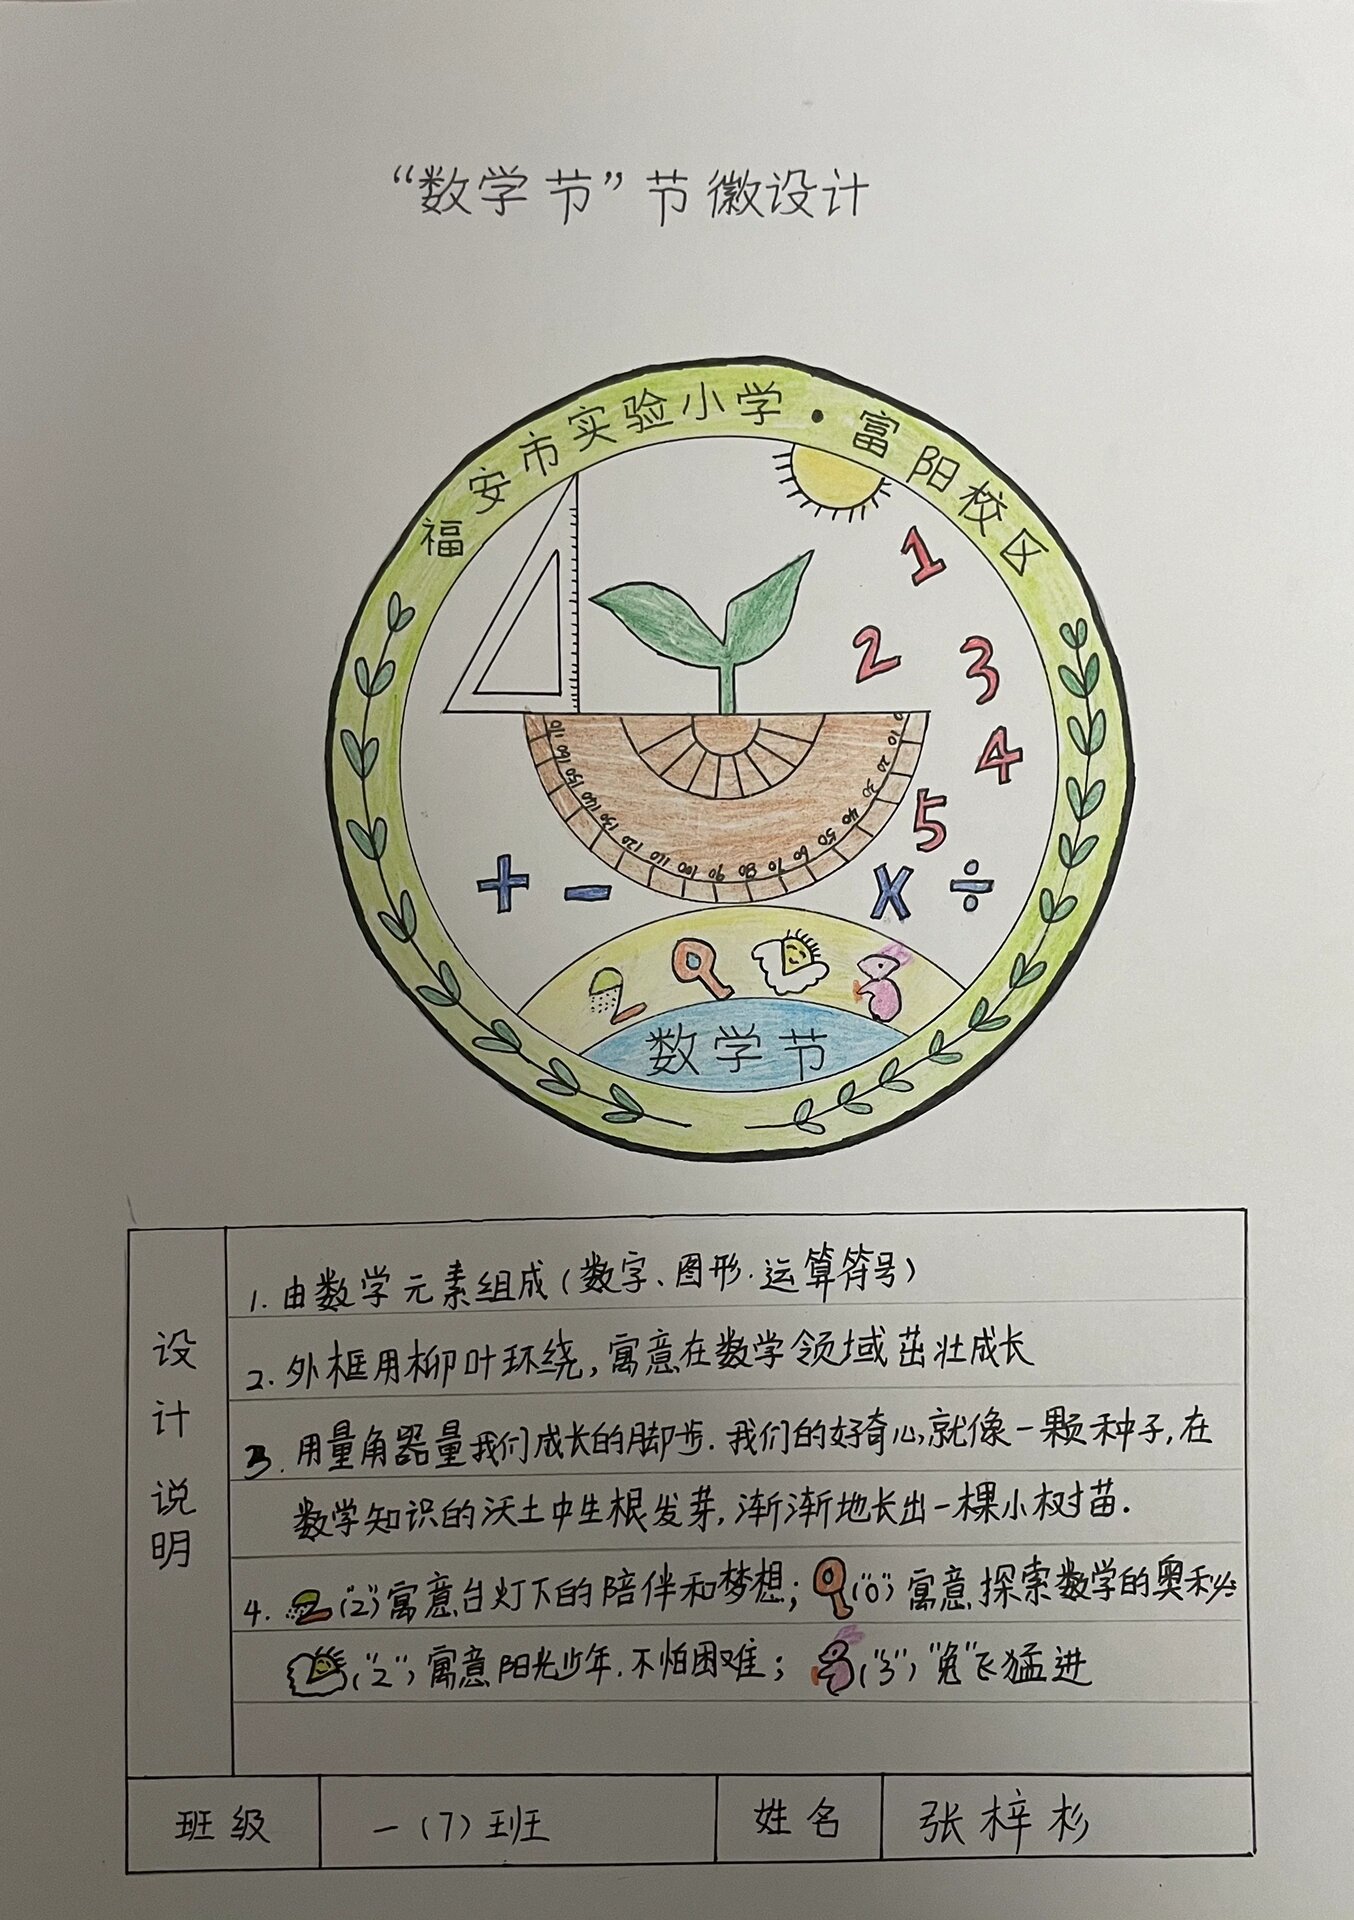 “数学节”节徽设计
福安市实验小学·富阳校区
1
2 3
4
5
0 10 20 30 40 50 60 70 80 90 100 110 120 130 140 150 160 170
+ - × ÷
数学节
设计说明
1. 由数学元素组成(数字、图形.运算符号)
2. 外框用柳叶环绕,寓意在数学领域茁壮成长
3. 用量角器量我们成长的脚步.我们的好奇心,就像一颗种子,在
数学知识的沃土中生根发芽,渐渐地长出一棵小树苗.
4. (“2”)寓意台灯下的陪伴和梦想;(“0”)寓意探索数学的奥秘
(“2”)寓意阳光少年.不怕困难;(“3”)“兔”飞猛进
班级 一(7)班 姓名 张梓杉